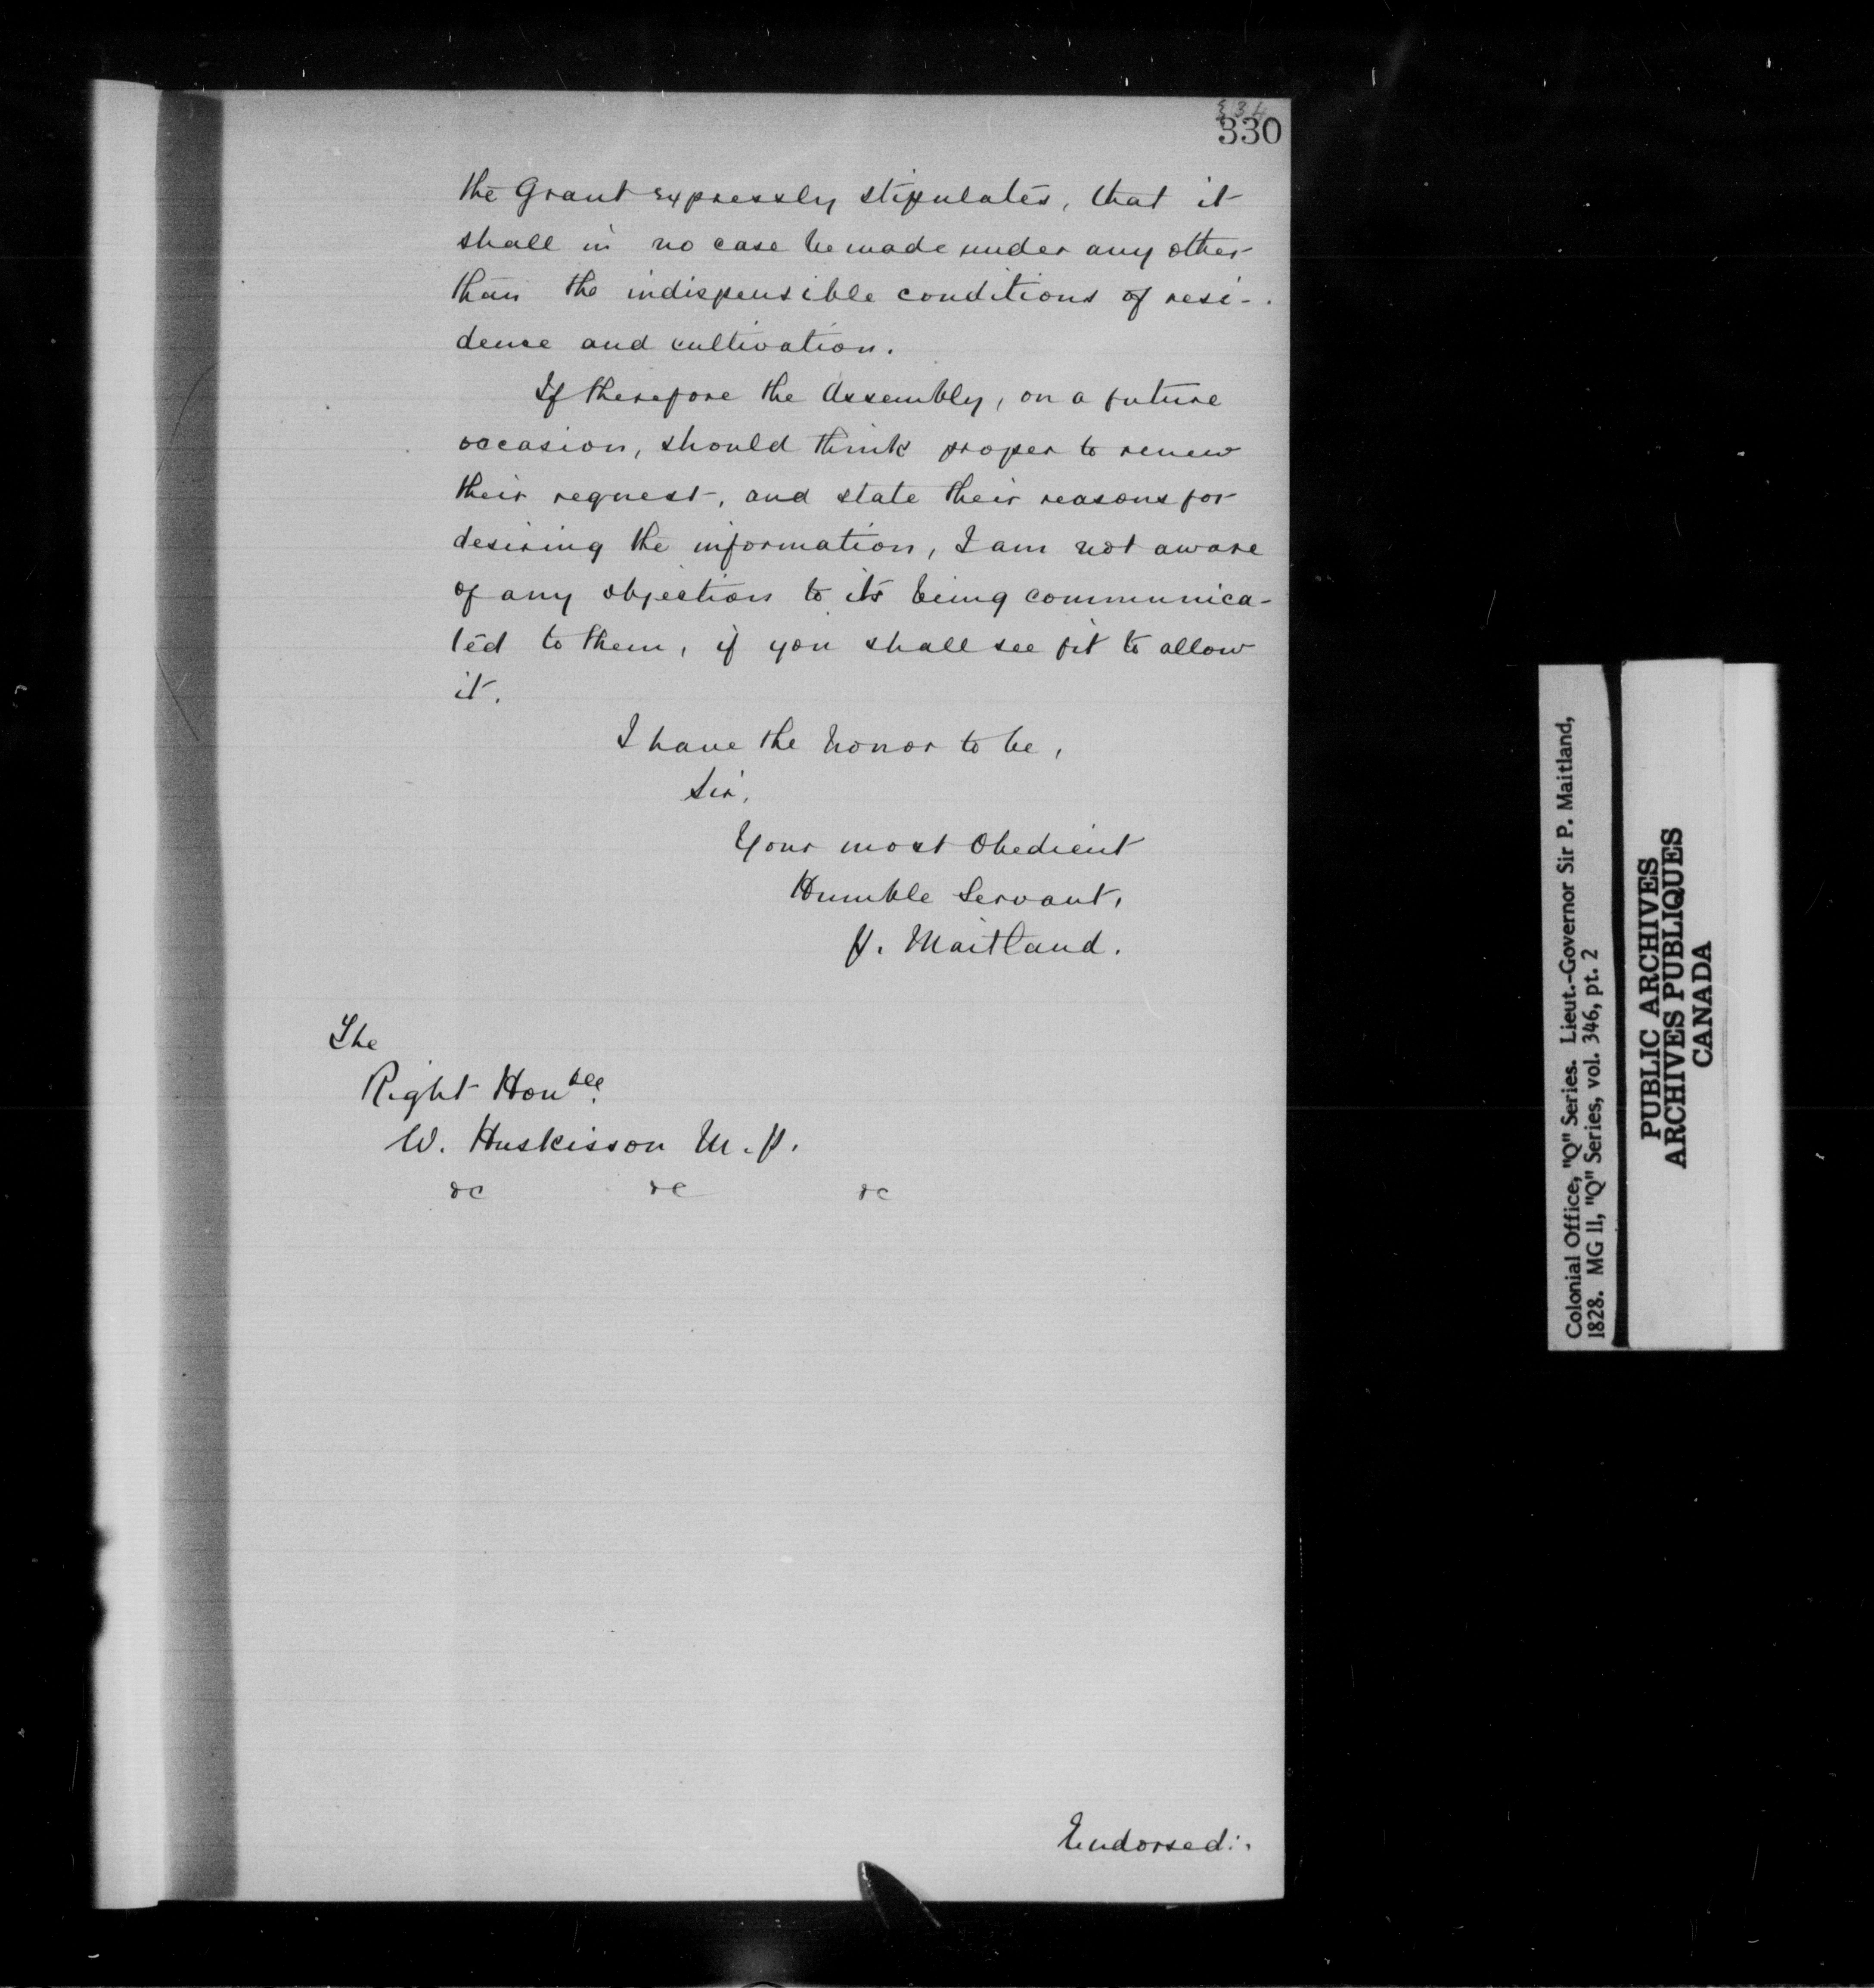 330
the Grant expressly stipulates, that it
shall in no case be made under any other
than the indispensible conditions of resi-
dence and cultivation.
If therefore the Assembly, on a future
occasion, should think proper to renew
their request, and state their reasons for
desiring the information, I am not aware
of any objection to its being communica-
ted to them, if you shall see fit to allow
it.
I have the honor to be,
Sir,
Your most Obedient
Humble Servant,
P. Maitland.
The
Right Honble
W. Huskisson M.P.
&c &c &c
Endorsed:
Colonial Office, "Q" Series. Lieut.-Governor Sir P. Maitland,
1828. MG 11, "Q" Series, vol. 346, pt. 2
PUBLIC ARCHIVES
ARCHIVES PUBLIQUES
CANADA